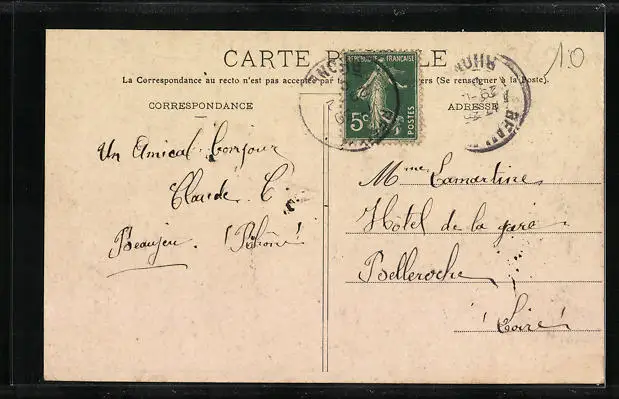 CARTE POSTALE
La Correspondance au recto n'est pas acceptée par (Se renseigner à la Poste).
CORRESPONDANCE
ADRESSE
RÉPUBLIQUE FRANÇAISE
5c
POSTES
RHONE
10
Un Amical bonjour
Claude C.
Beaujeu. (Rhône)
Mme Lamartine
Hôtel de la gare
Belleroche
(Loire)